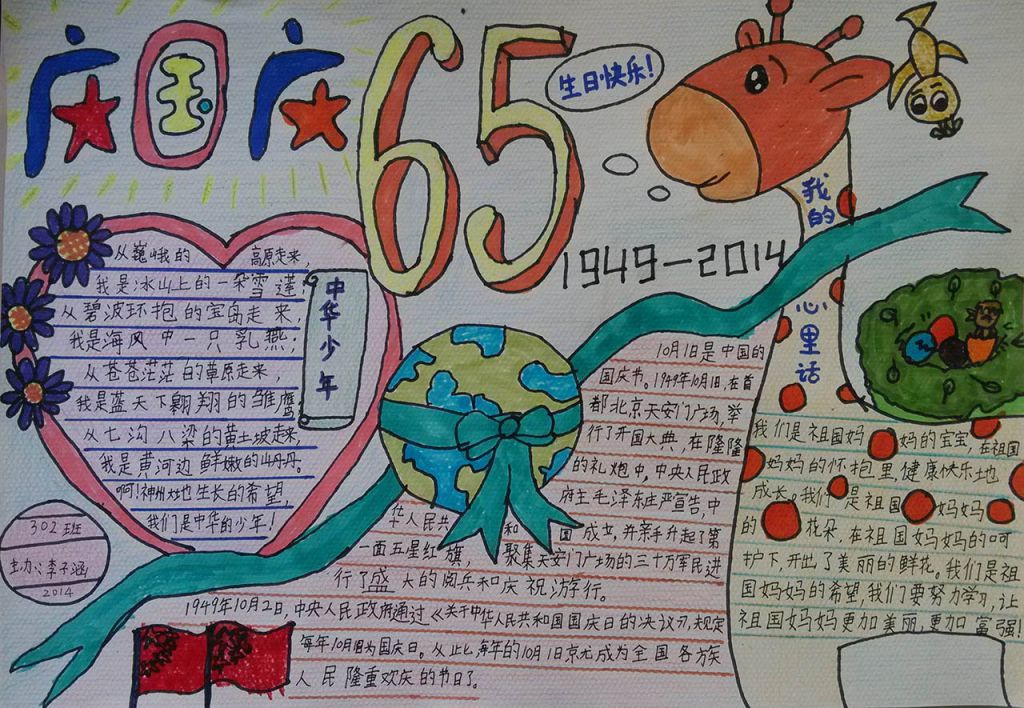 庆国庆
65
生日快乐!
1949-2014
我的心里话
中华少年
从巍峨的 高原走来,
我是冰山上的一朵雪莲;
从碧波环抱的宝岛走来,
我是海风中一只乳燕;
从苍苍茫茫的草原走来,
我是蓝天下翱翔的雏鹰
从七沟八梁的黄土坡走来,
我是黄河边鲜嫩的山丹丹。
啊!神州大地生长的希望,
我们是中华的少年!
302班
主办:李子涵
2014
10月1日是中国的
国庆节。1949年10月1日,在首
都北京天安门广场,举
行了开国大典,在隆隆
的礼炮中,中央人民政
府主毛泽东庄严宣告,中
华人民共和国成立,并亲手升起了第
一面五星红旗,聚集天安门广场的三十万军民进
行了盛大的阅兵和庆祝游行。
1949年10月2日,中央人民政府通过《关于中华人民共和国国庆日的决议》,规定
每年10月1日为国庆日。从此每年的10月1日就成为全国各族
人民隆重欢庆的节日了。
我们是祖国妈妈的宝宝,在祖国
妈妈的怀抱里健康快乐地
成长。我们是祖国妈妈
的花朵,在祖国妈妈的呵
护下,开出了美丽的鲜花。我们是祖
国妈妈的希望,我们要努力学习,让
祖国妈妈更加美丽,更加富强!